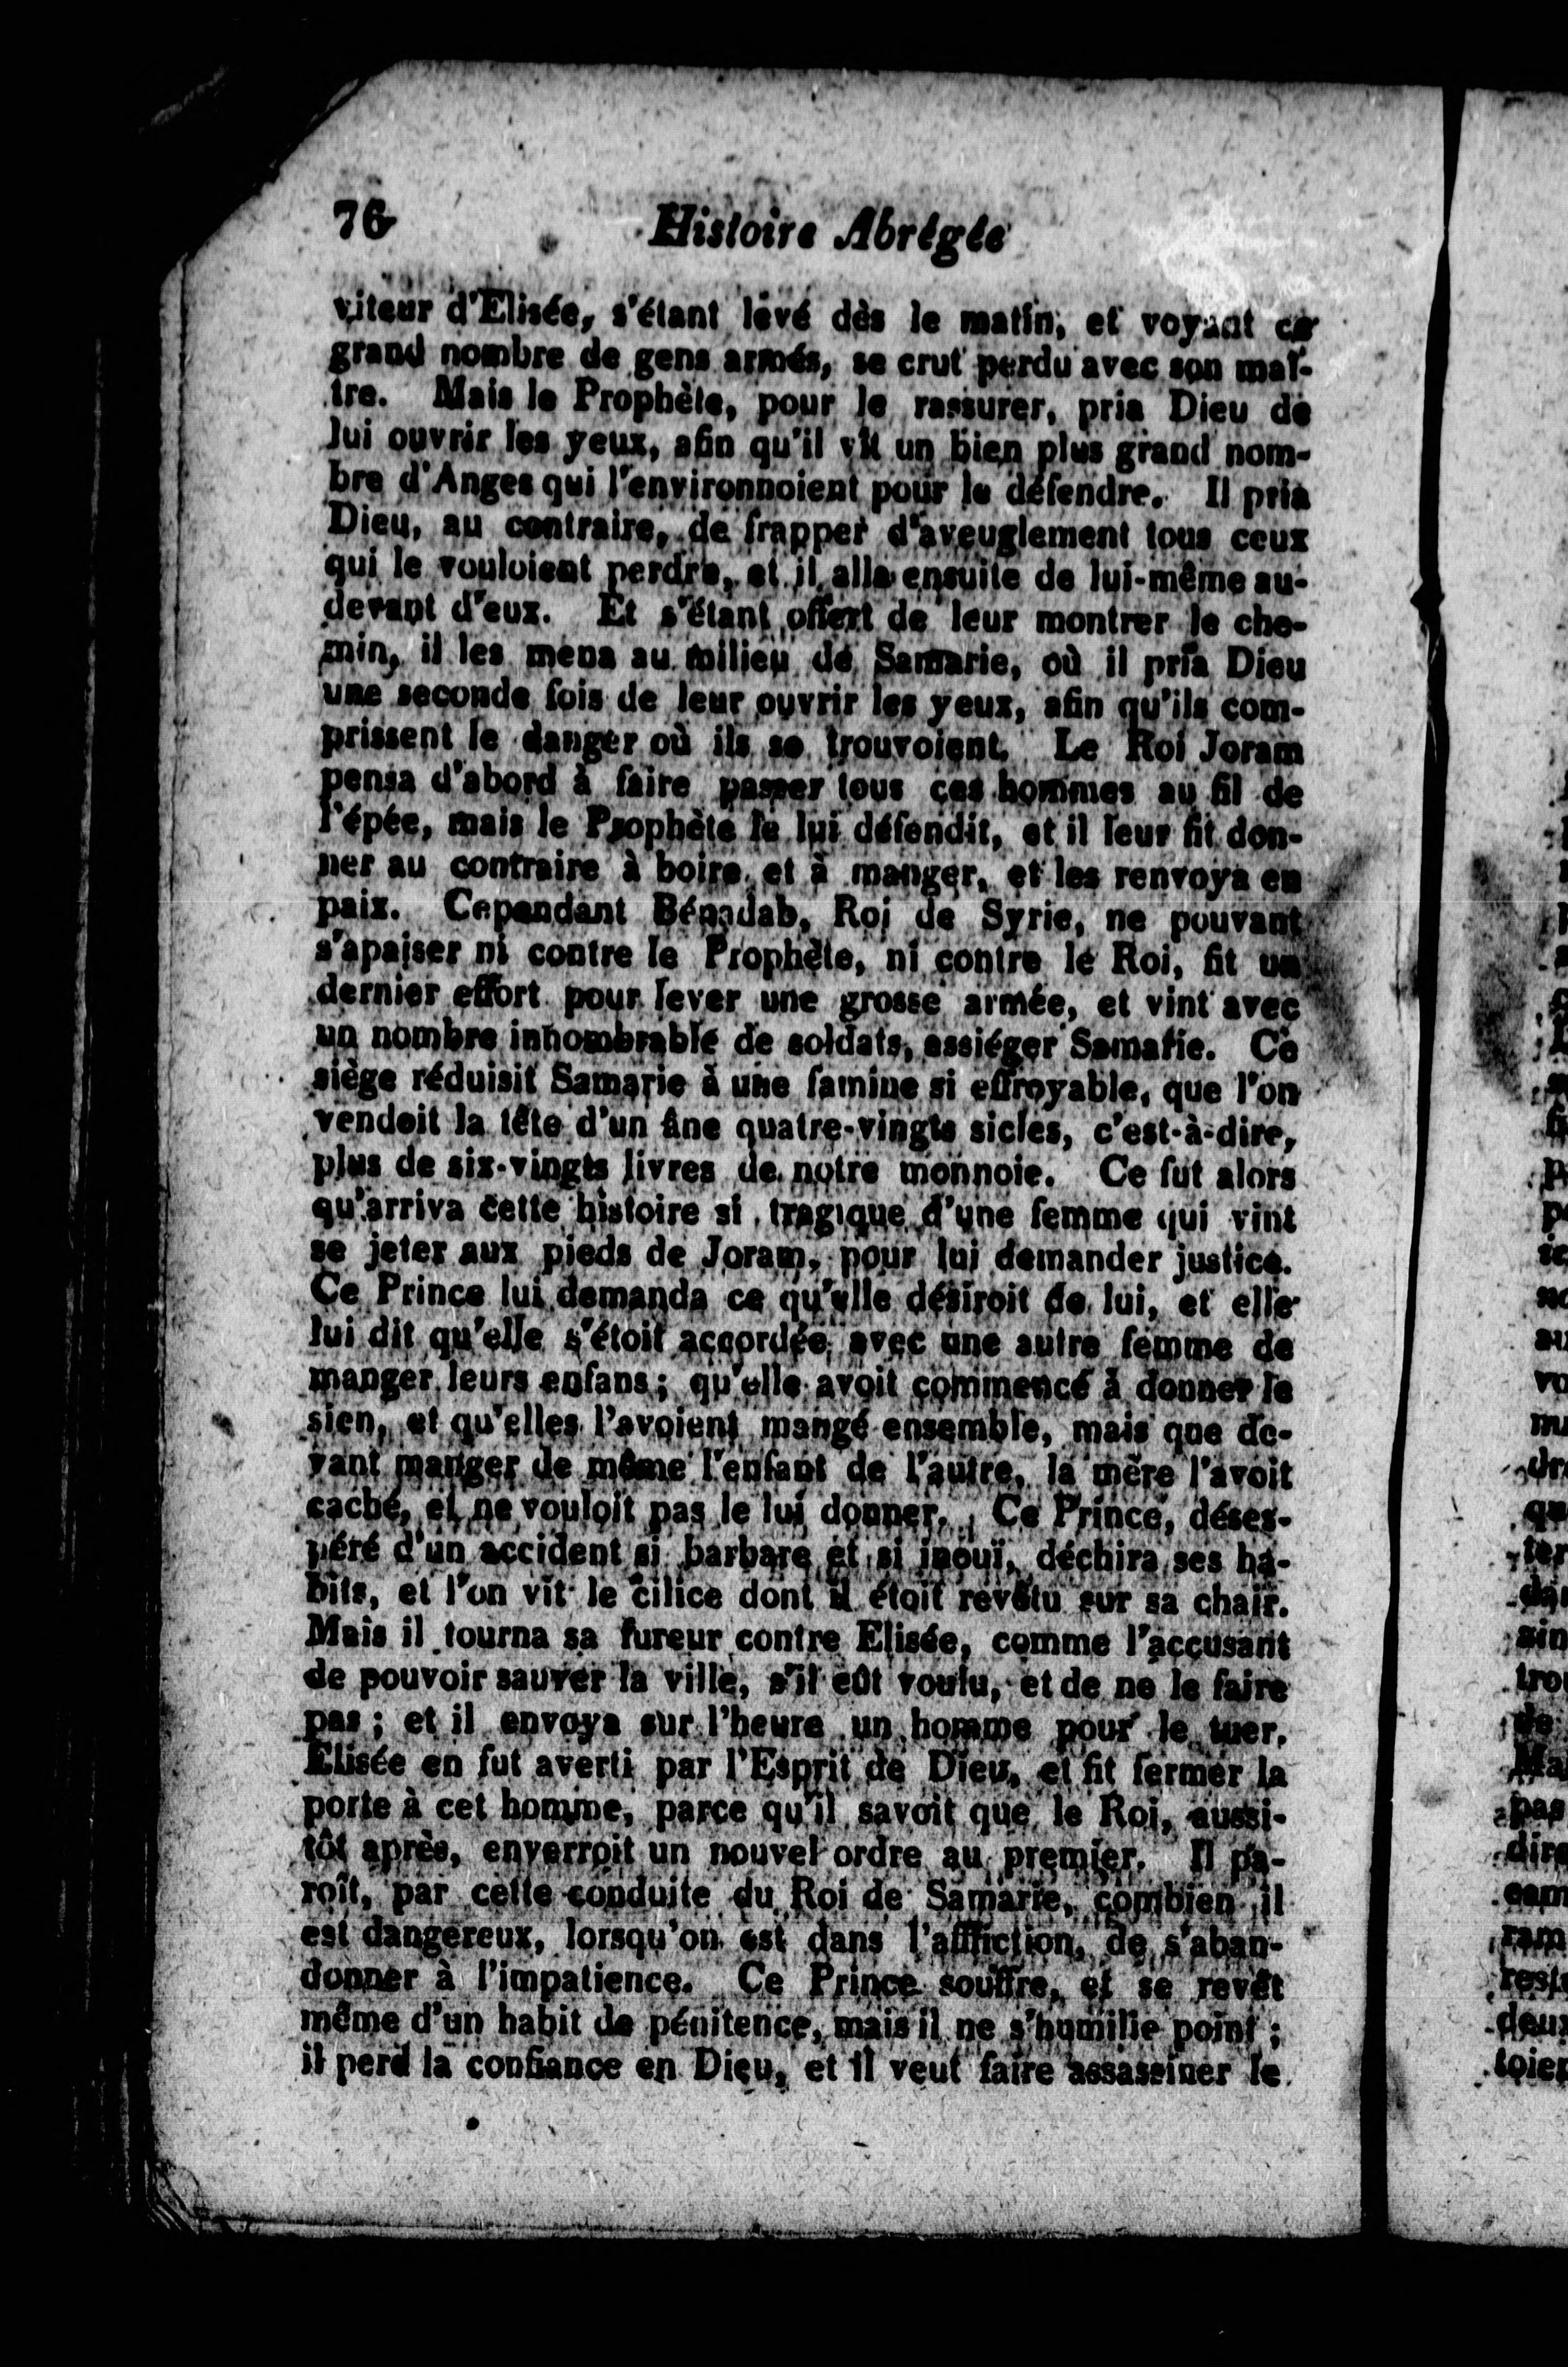 76
Histoire Abrégée
viteur d'Elisée, s'étant levé dès le matin, et voyant ce
grand nombre de gens armés, se crut perdu avec son maî-
tre. Mais le Prophète, pour le rassurer, pria Dieu de
lui ouvrir les yeux, afin qu'il vît un bien plus grand nom-
bre d'Anges qui l'environnoient pour le défendre. Il pria
Dieu, au contraire, de frapper d'aveuglement tous ceux
qui le vouloient perdre, et il alla ensuite de lui-même au-
devant d'eux. Et s'étant offert de leur montrer le che-
min, il les mena au milieu de Samarie, où il pria Dieu
une seconde fois de leur ouvrir les yeux, afin qu'ils com-
prissent le danger où ils se trouvoient. Le Roi Joram
pensa d'abord à faire passer tous ces hommes au fil de
l'épée, mais le Prophète le lui défendit, et il leur fit don-
ner au contraire à boire et à manger, et les renvoya en
paix. Cependant Bénadab, Roi de Syrie, ne pouvant
s'apaiser ni contre le Prophète, ni contre le Roi, fit un
dernier effort pour lever une grosse armée, et vint avec
un nombre innombrable de soldats, assiéger Samarie. Ce
siège réduisit Samarie à une famine si effroyable, que l'on
vendoit la tête d'un âne quatre-vingts sicles, c'est-à-dire,
plus de six-vingts livres de notre monnoie. Ce fut alors
qu'arriva cette histoire si tragique d'une femme qui vint
se jeter aux pieds de Joram, pour lui demander justice.
Ce Prince lui demanda ce qu'elle désiroit de lui, et elle
lui dit qu'elle s'étoit accordée avec une autre femme de
manger leurs enfans; qu'elle avoit commencé à donner le
sien, et qu'elles l'avoient mangé ensemble, mais que de-
vant manger de même l'enfant de l'autre, la mère l'avoit
caché, et ne vouloit pas le lui donner. Ce Prince, déses-
péré d'un accident si barbare et si inouï, déchira ses ha-
bits, et l'on vit le cilice dont il étoit revêtu sur sa chair.
Mais il tourna sa fureur contre Elisée, comme l'accusant
de pouvoir sauver la ville, s'il eût voulu, et de ne le faire
pas; et il envoya sur l'heure un homme pour le tuer.
Elisée en fut averti par l'Esprit de Dieu, et fit fermer la
porte à cet homme, parce qu'il savoit que le Roi, aussi-
tôt après, enverroit un nouvel ordre au premier. Il pa-
roît, par cette conduite du Roi de Samarie, combien il
est dangereux, lorsqu'on est dans l'affliction, de s'aban-
donner à l'impatience. Ce Prince souffre, et se revêt
même d'un habit de pénitence, mais il ne s'humilie point;
il perd la confiance en Dieu, et il veut faire assassiner le